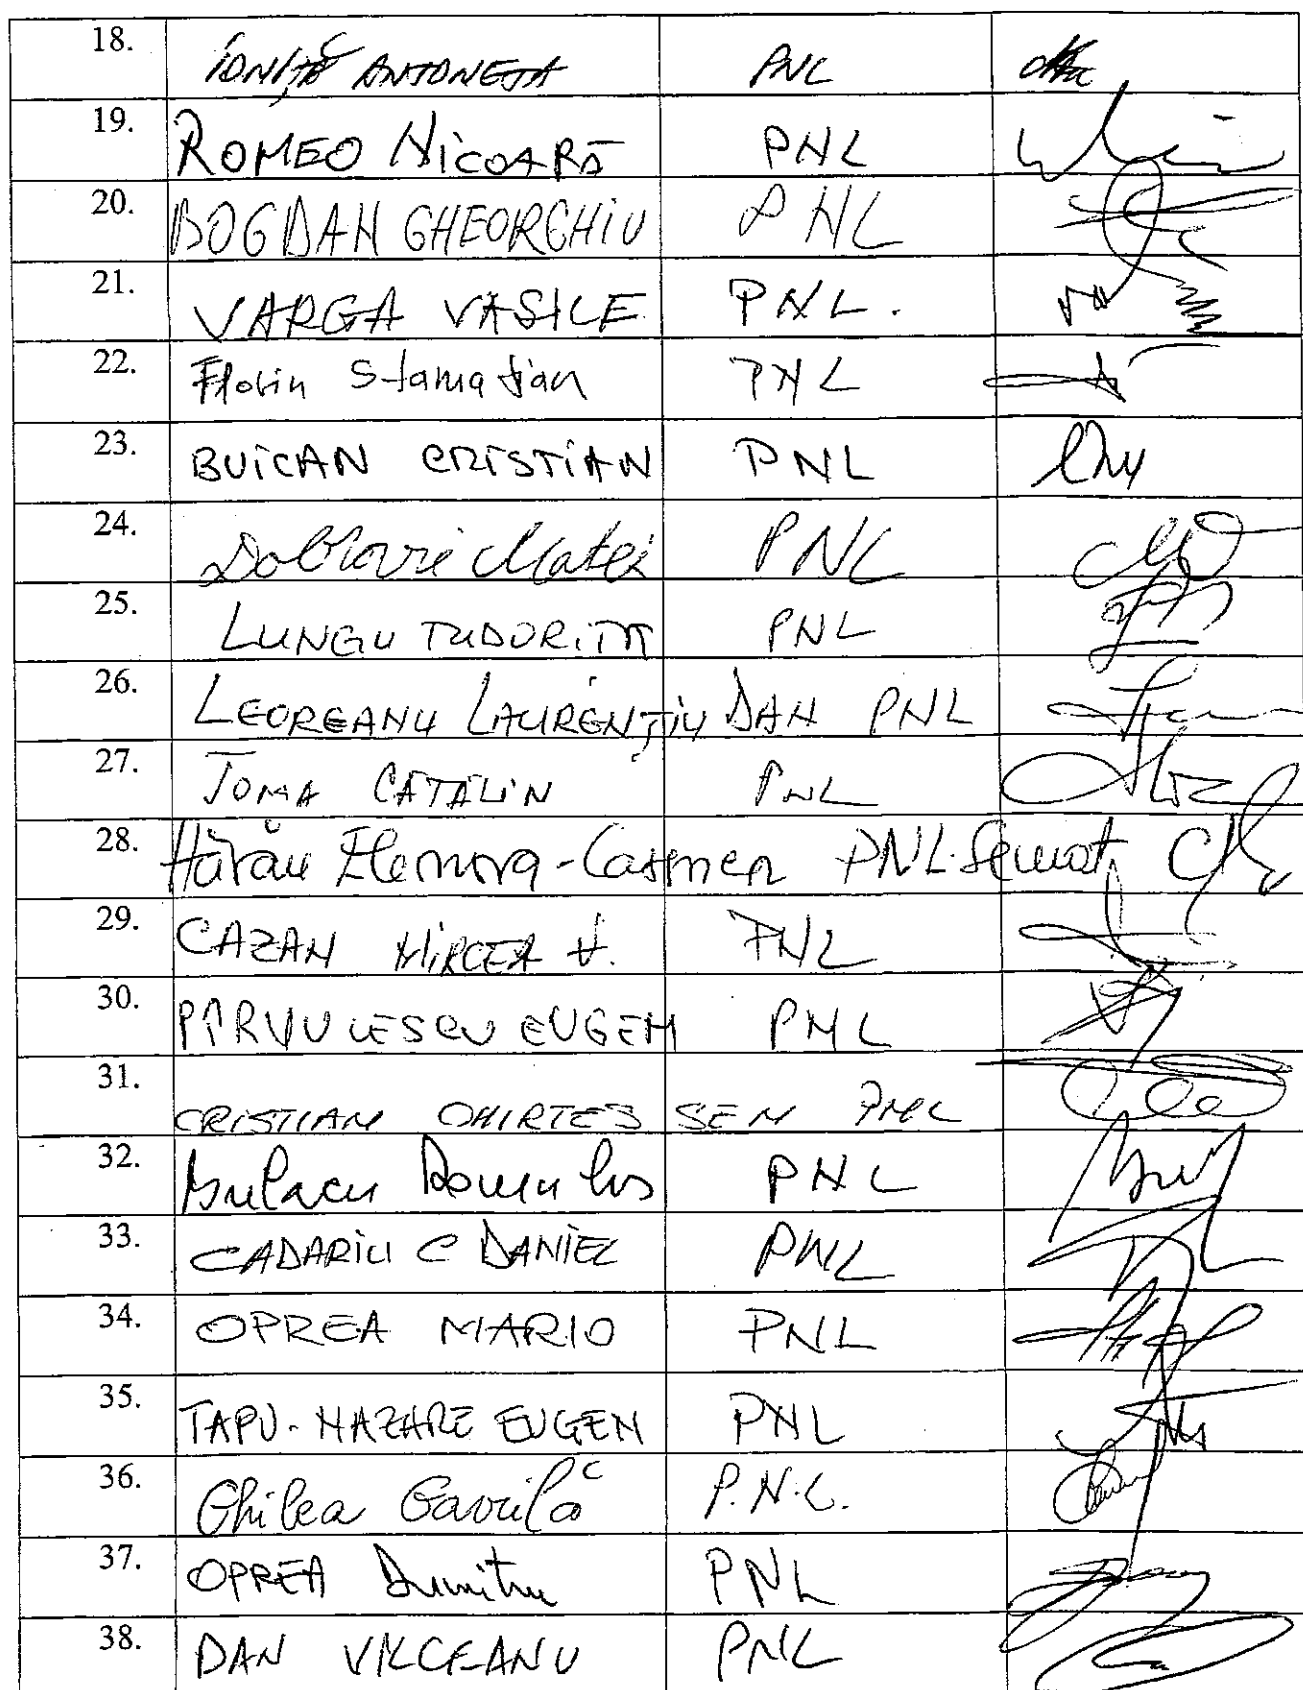 18. IONIȚĂ ANTONETA PNL
19. ROMEO NICOARĂ PNL
20. BOGDAN GHEORGHIU PNL
21. VARGA VASILE PNL.
22. Florin Stamatian PNL
23. BUICAN CRISTIAN PNL
24. Dobrovie Matei PNL
25. LUNGU TUDORIȚA PNL
26. LEOREANU LAURENȚIU DAN PNL
27. TOMA CĂTĂLIN PNL
28. Hărău Eleonora-Carmen PNL. Senat
29. CAZAN MIRCEA V. PNL
30. PÎRVULESCU EUGEN PNL
31. CRISTIAN CHIRTEȘ SEN PNL
32. Bulacu Romulus PNL
33. CADARIU C DANIEL PNL
34. OPREA MARIO PNL
35. TAPU-NAZARE EUGEN PNL
36. Ghilea Gavrilă P.N.L.
37. OPREA Dumitru PNL
38. DAN VILCEANU PNL